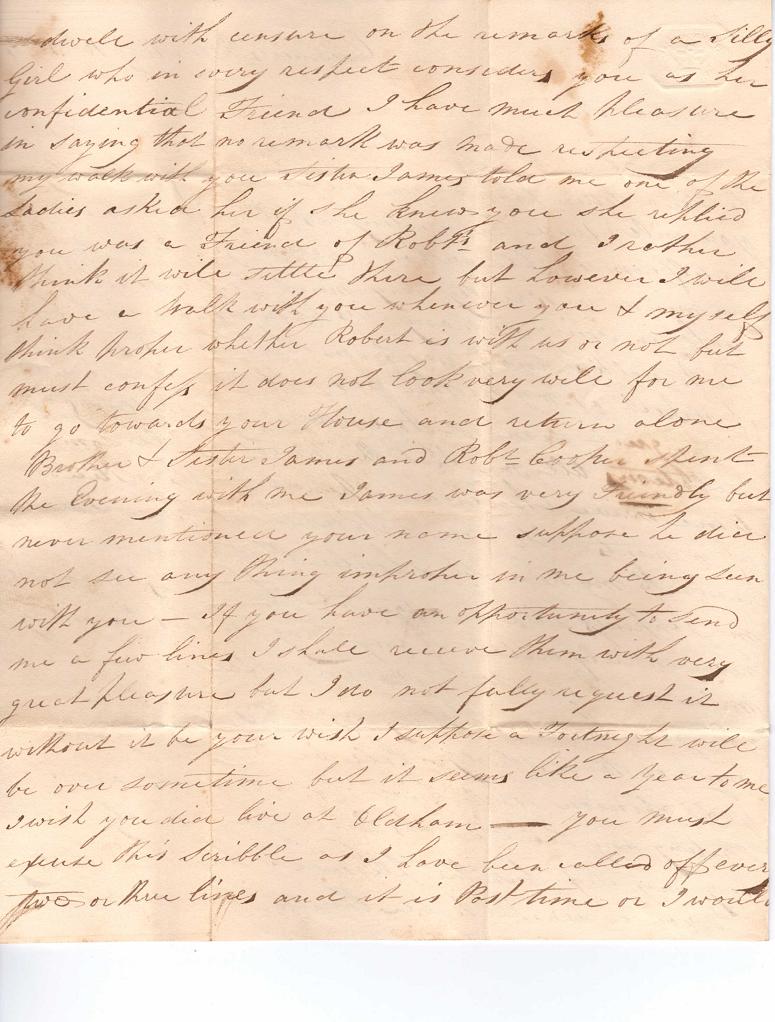 dwell with censure on the remarks of a Silly
Girl who in every respect considers you as her
confidential Friend I have much pleasure
in saying that no remark was made respecting
my walk with you Sister James told me one of the
Ladies asked her if she knew you she replied
you was a Friend of Robts and I rather
think it will settle there but however I will
have a Walk with you whenever you & myself
think proper whether Robert is with us or not but
must confess it does not look very well for me
to go towards your House and return alone
Brother & Sister James and Robt Cooper spent
the Evening with me James was very Friendly but
never mentioned your name suppose he did
not see any thing improper in me being seen
with you — If you have an opportunity to send
me a few lines I shall receive them with very
great pleasure but I do not fully request it
without it be your wish I suppose a Fortnight will
be over sometime but it seems like a Year to me
I wish you did live at Oldham — you must
excuse this Scribble as I have been called off ever
two or three lines and it is Post time or I would